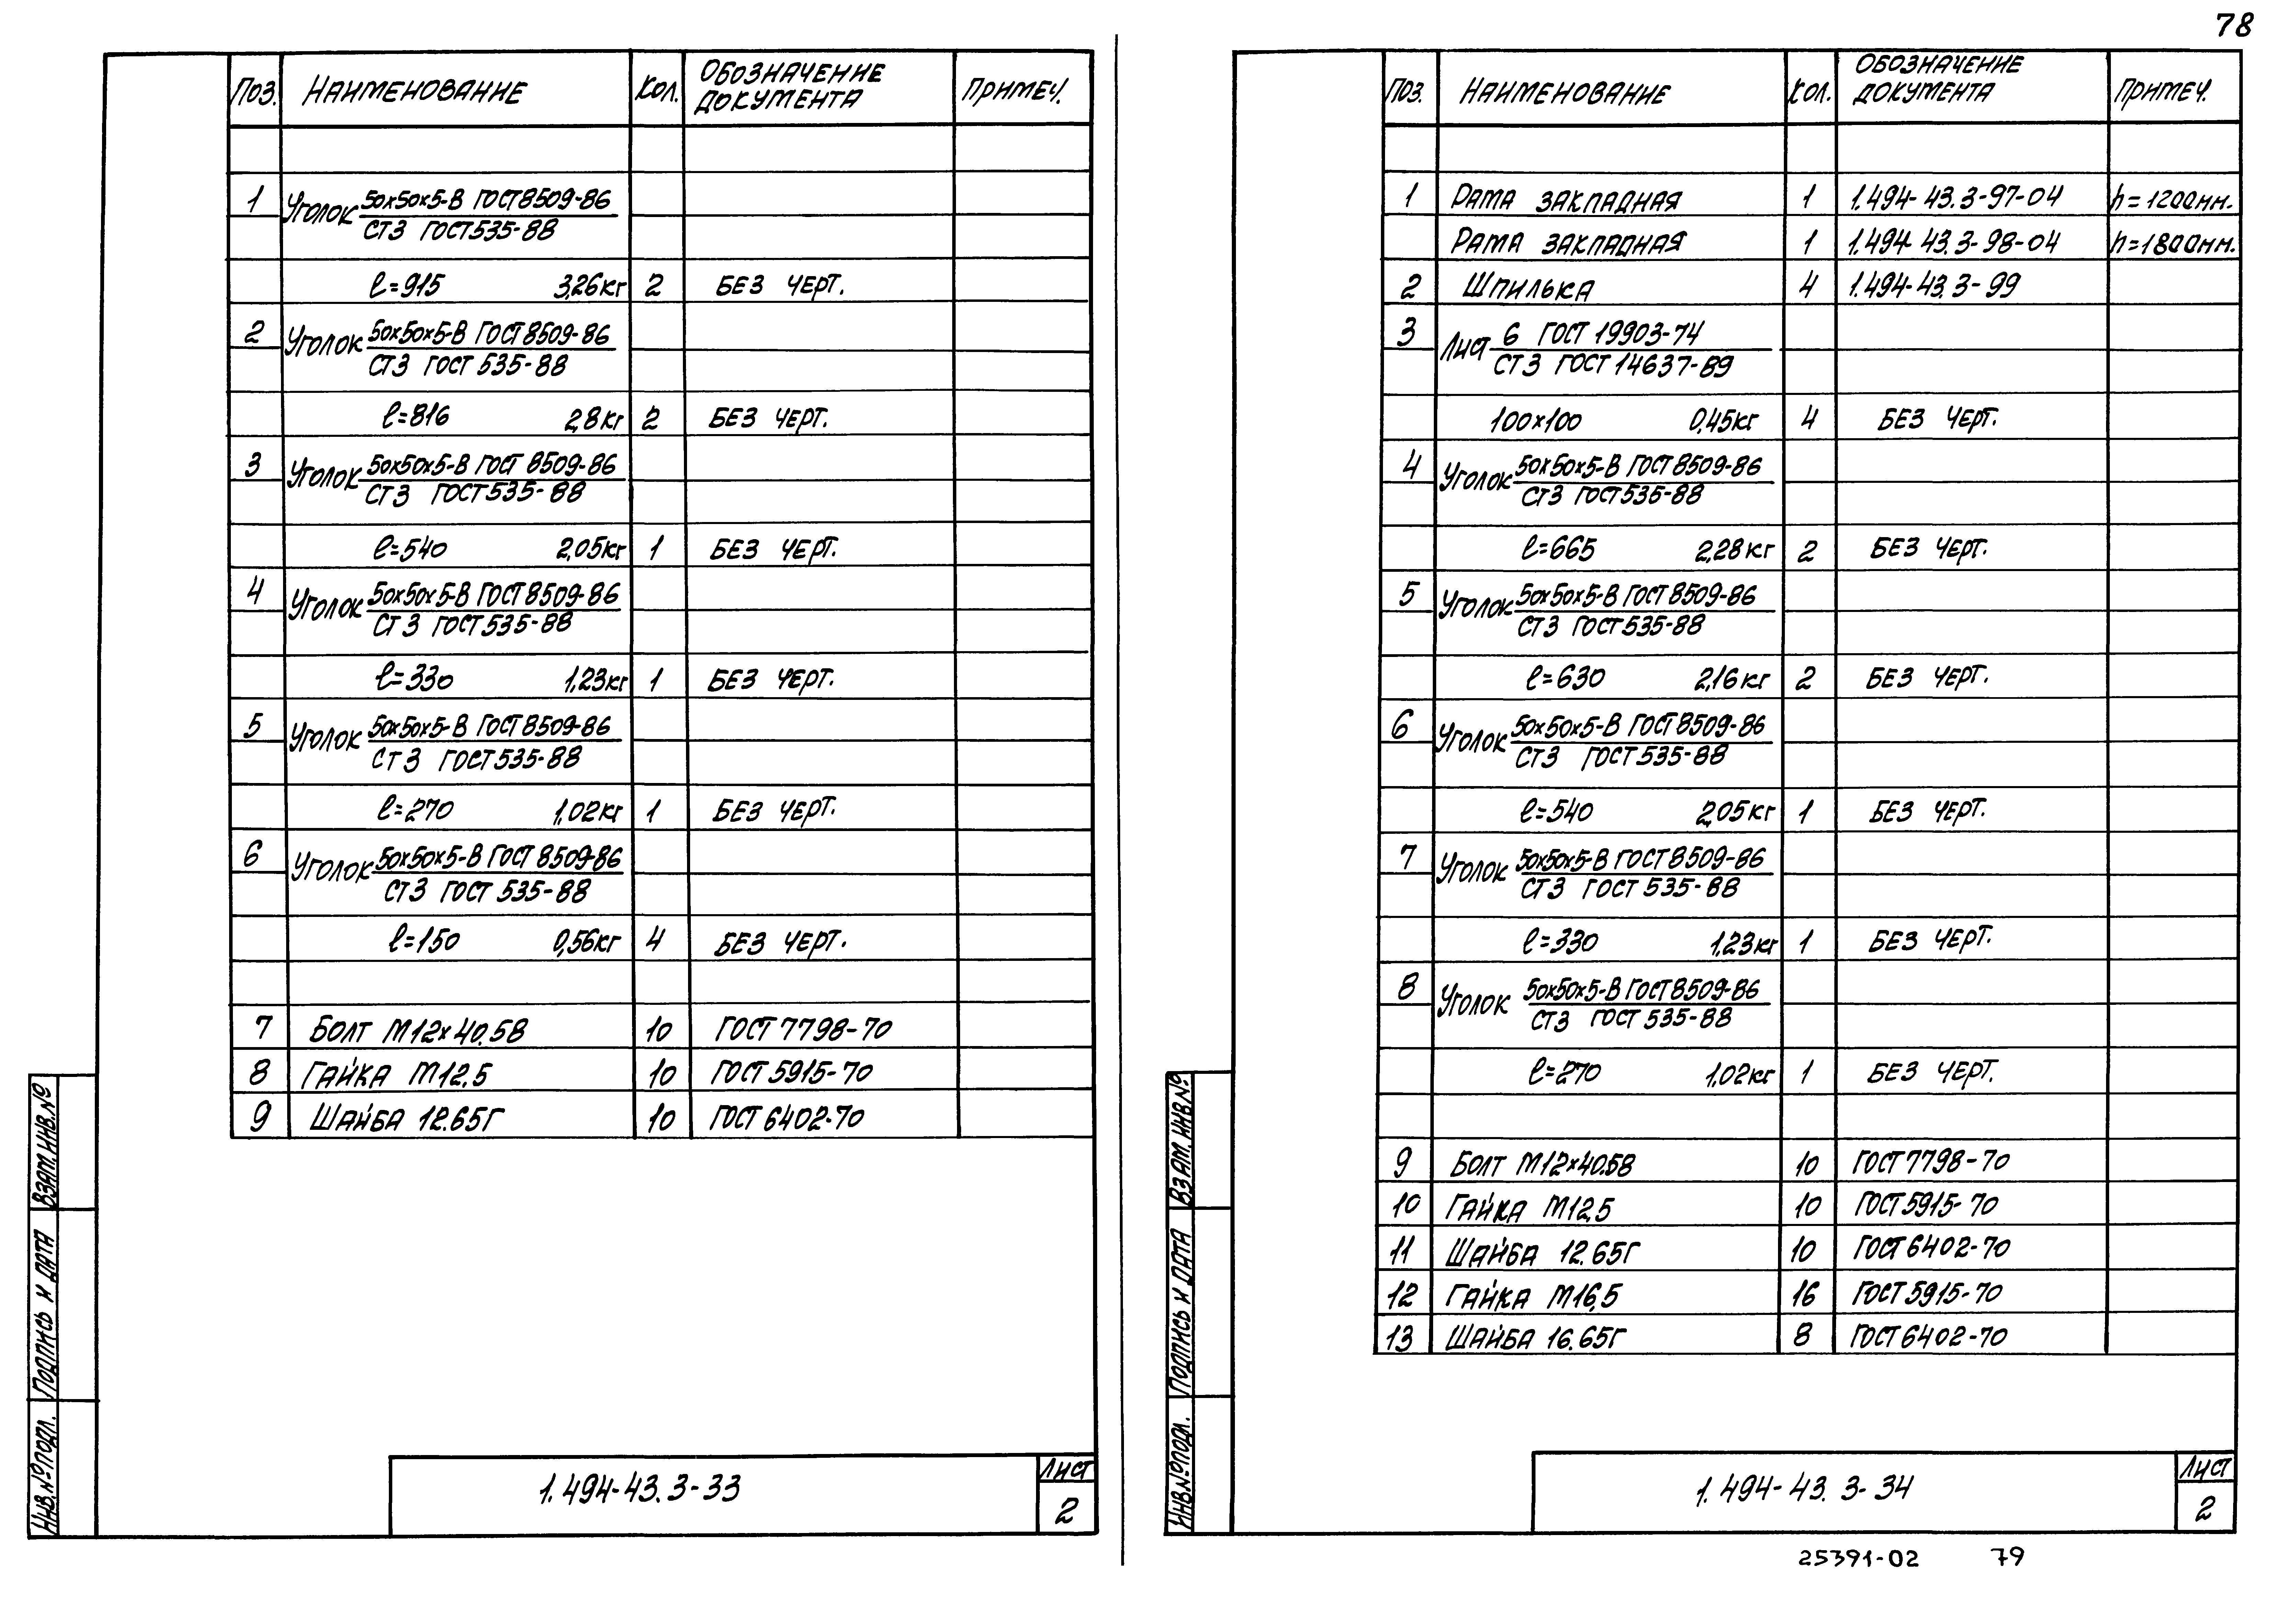 78
Поз. Наименование Кол. Обозначение документа Примеч.
1 Уголок 50х50х5-В ГОСТ 8509-86
Ст3 ГОСТ 535-88
ℓ=915 3,26кг 2 Без черт.
2 Уголок 50х50х5-В ГОСТ 8509-86
Ст3 ГОСТ 535-88
ℓ=816 2,8кг 2 Без черт.
3 Уголок 50х50х5-В ГОСТ 8509-86
Ст3 ГОСТ 535-88
ℓ=540 2,05кг 1 Без черт.
4 Уголок 50х50х5-В ГОСТ 8509-86
Ст3 ГОСТ 535-88
ℓ=330 1,23кг 1 Без черт.
5 Уголок 50х50х5-В ГОСТ 8509-86
Ст3 ГОСТ 535-88
ℓ=270 1,02кг 1 Без черт.
6 Уголок 50х50х5-В ГОСТ 8509-86
Ст3 ГОСТ 535-88
ℓ=150 0,56кг 4 Без черт.
7 Болт М12х40.58 10 ГОСТ 7798-70
8 Гайка М12.5 10 ГОСТ 5915-70
9 Шайба 12.65Г 10 ГОСТ 6402-70
Взам.инв.№
Подпись и дата
Инв.№подл.
1.494-43.3-33
Лист
2
Поз. Наименование Кол. Обозначение документа Примеч.
1 Рама закладная 1 1.494-43.3-97-04 h=1200мм.
Рама закладная 1 1.494-43.3-98-04 h=1800мм.
2 Шпилька 4 1.494-43.3-99
3 Лист 6 ГОСТ 19903-74
Ст3 ГОСТ 14637-89
100х100 0,45кг 4 Без черт.
4 Уголок 50х50х5-В ГОСТ 8509-86
Ст3 ГОСТ 535-88
ℓ=665 2,28кг 2 Без черт.
5 Уголок 50х50х5-В ГОСТ 8509-86
Ст3 ГОСТ 535-88
ℓ=630 2,16кг 2 Без черт.
6 Уголок 50х50х5-В ГОСТ 8509-86
Ст3 ГОСТ 535-88
ℓ=540 2,05кг 1 Без черт.
7 Уголок 50х50х5-В ГОСТ 8509-86
Ст3 ГОСТ 535-88
ℓ=330 1,23кг 1 Без черт.
8 Уголок 50х50х5-В ГОСТ 8509-86
Ст3 ГОСТ 535-88
ℓ=270 1,02кг 1 Без черт.
9 Болт М12х40.58 10 ГОСТ 7798-70
10 Гайка М12.5 10 ГОСТ 5915-70
11 Шайба 12.65Г 10 ГОСТ 6402-70
12 Гайка М16.5 16 ГОСТ 5915-70
13 Шайба 16.65Г 8 ГОСТ 6402-70
Взам.инв.№
Подпись и дата
Инв.№подл.
1.494-43.3-34
Лист
2
25391-02 79